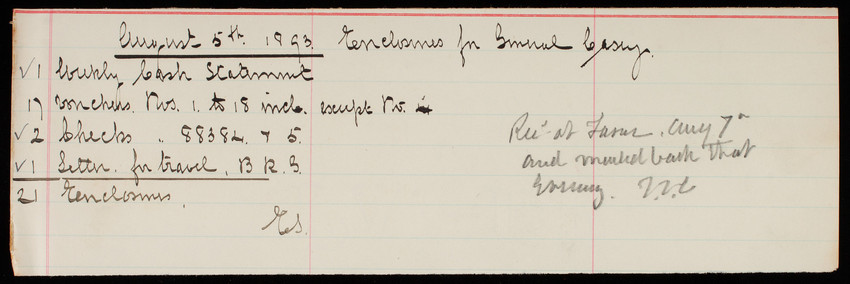 August 5th. 1893. Enclosures for General Casey.
√1 Weekly Cash Statement
17 vouchers. Nos. 1. to 18 incl. except No. 4
√2 Checks „ 88384. & 5.
√1 Letter. for travel, B.R.G.
21 Enclosures.
ES.
Rec'd at Farm. Aug 7th
and mailed back that
Evening. T.L.C